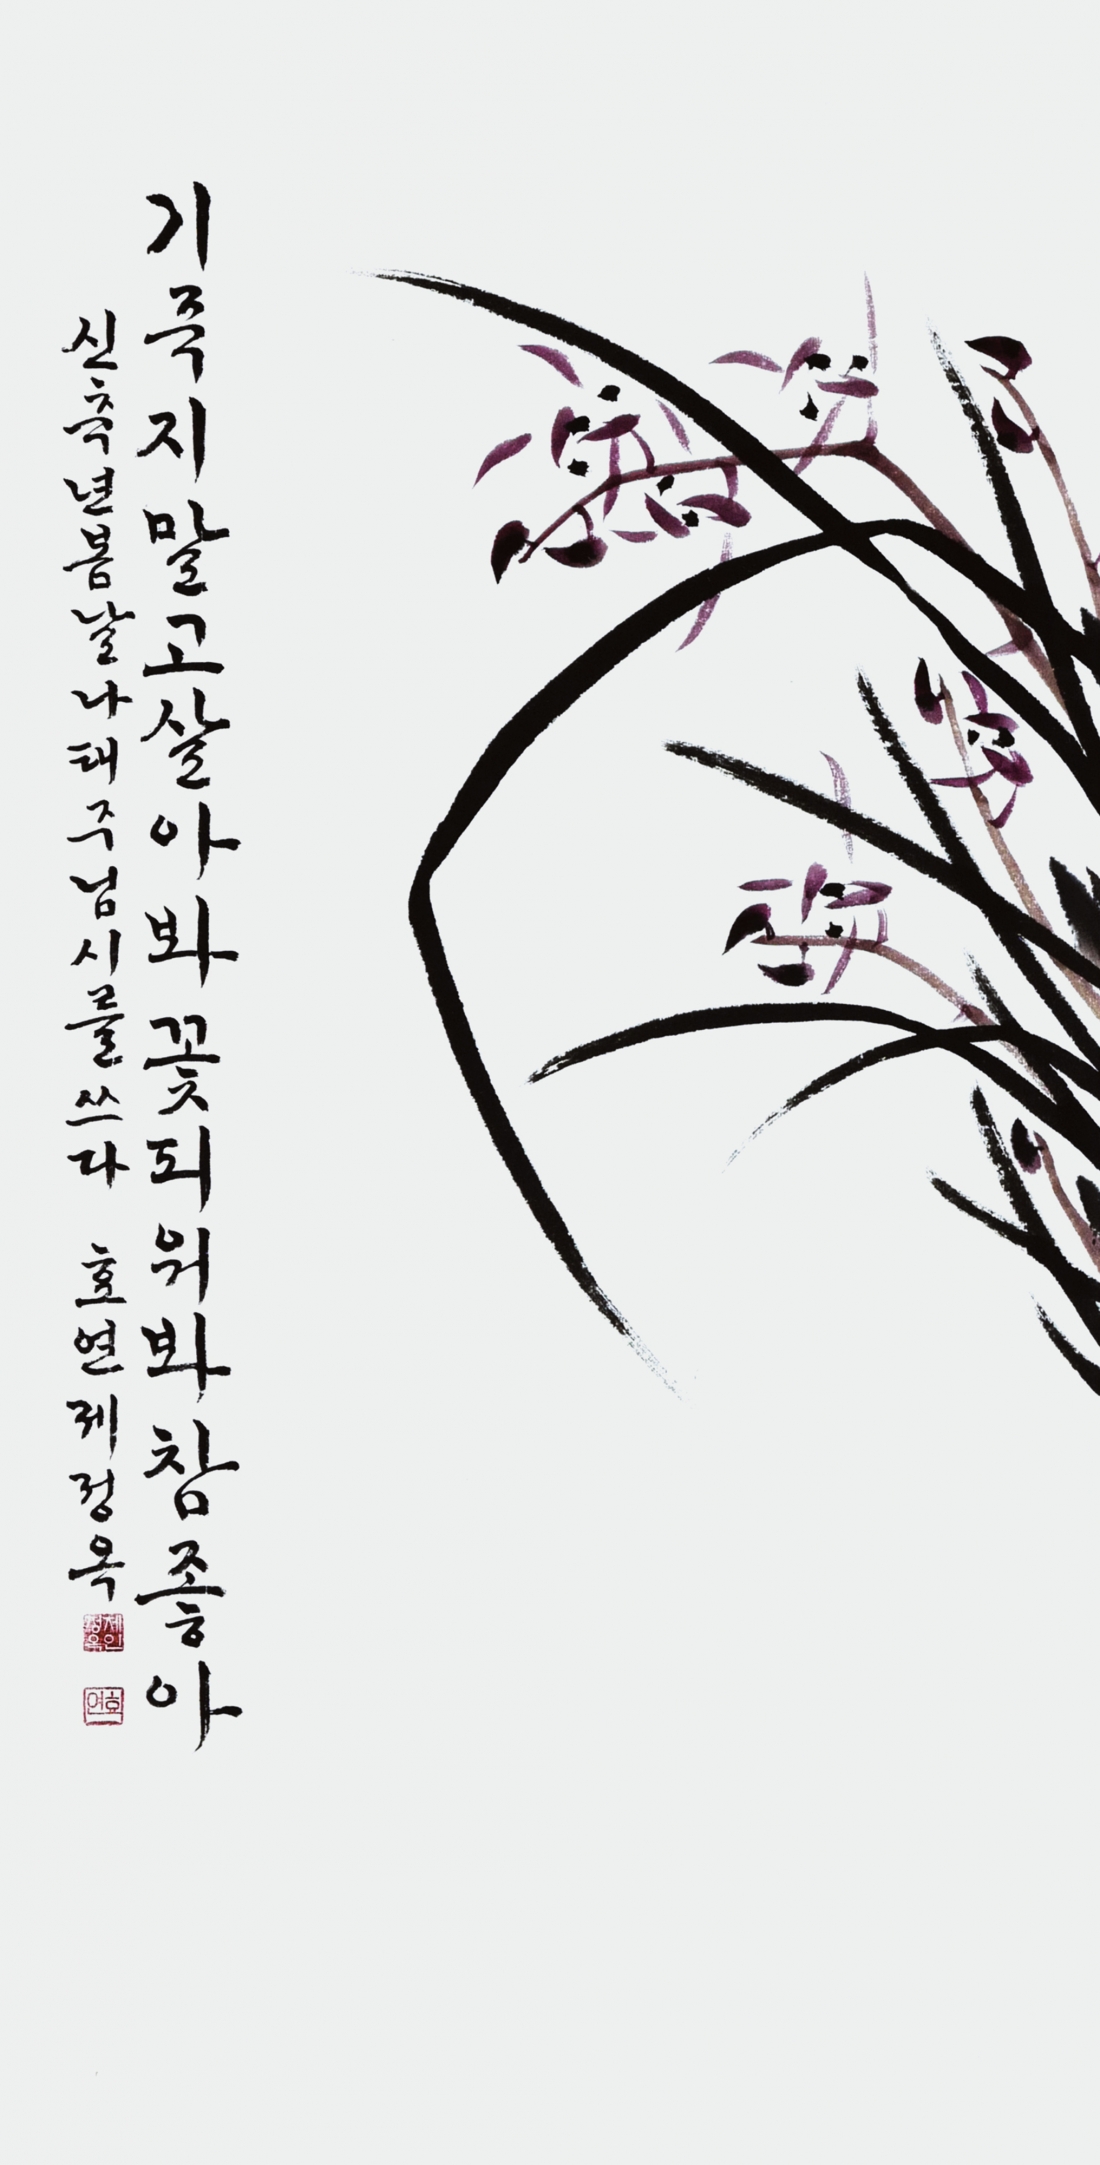 기죽지말고살아봐꽃피워봐참좋아
신축년봄날나태주님시를쓰다 효연제정옥